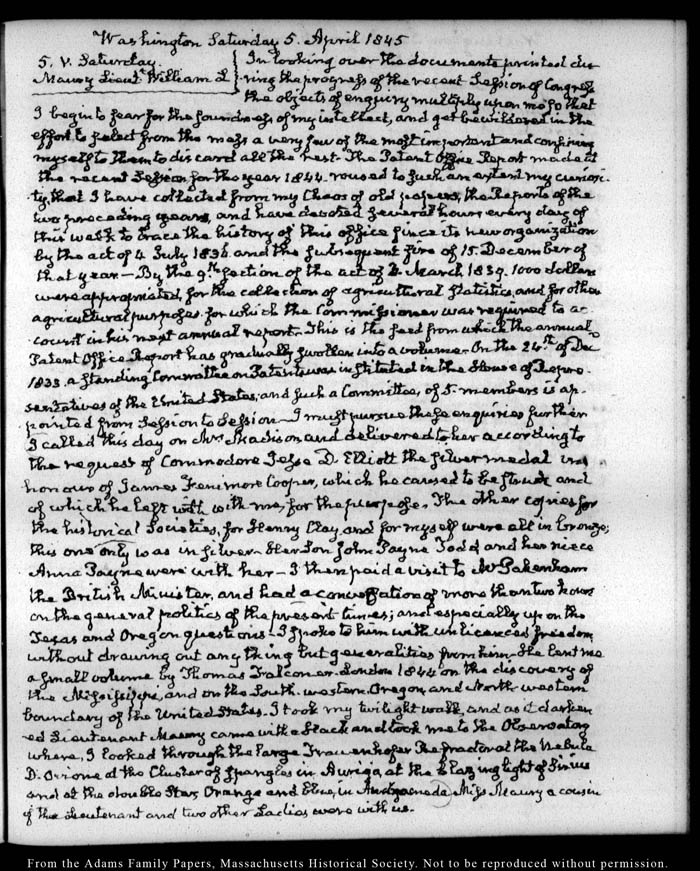 Washington Saturday 5. April 1845
5. V. Saturday.
Maury Lieut.t William L
In looking over the documents printed du-
ring the progress of the recent Session of Congress
the objects of enquiry multiply upon me so that
I begin to fear for the soundness of my intellect, and get bewildered in the
effort to select from the mass a very few of the most important and confining
myself to them to discard all the rest. The Patent Office Report made at
the recent Session for the year 1844. roused to such an extent my curiosi-
ty, that I have collected from my Chaos of old papers, the Reports of the
two preceding years, and have devoted several hours every day of
this week to trace the history of this office since its new organization
by the act of 4 July 1836 and the subsequent fire of 15. December of
that year — By the 9th section of the act of 3. March 1839. 1000 dollars
were appropriated, for the collection of agricultural statistics, and for other
agricultural purposes for which the Commissioner was required to ac-
count in his next annual report. This is the seed from which the annual
Patent Office Report has gradually swollen into a volume. On the 24th of Dec
1833. a standing Committee on Patents was instituted in the House of Repre-
sentatives of the United States, and such a Committee, of 5. members is ap-
pointed from Session to Session — I must pursue these enquiries further
I called this day on Mrs Madison and delivered to her according to
the request of Commodore Jesse D. Elliott the silver medal in
honour of James Fenimore Cooper, which he caused to be struck and
of which he left with with me, for the purpose. The other copies for
the historical Societies, for Henry Clay, and for myself were all in bronze;
this one only was in silver. Her Son John Payne Todd, and her niece
Anna Payne were with her — I then paid a visit to Mr Pakenham
the British Minister, and had a conversation of more than two hours
on the general politics of the present times; and especially upon the
Texas and Oregon questions — I spoke to him with unlicenced freedom,
without drawing out any thing but generalities from him. He lent me
a small volume by Thomas Falconer. London 1844 on the discovery of
the Mississippi, and on the South-western Oregon, and North-western
boundary of the United States. I took my twilight walk, and as it darken-
ed Lieutenant Maury came with a Hack and took me to the Observatory
where, I looked through the large Frauenhofer Refractor at the Nebula
D. Orione at the Cluster of spangles in Auriga, at the blazing light of Sirius
and at the double Star, Orange and blue, in Andromeda. Miss Maury a cousin
of the Lieutenant and two other Ladies were with us.
From the Adams Family Papers, Massachusetts Historical Society. Not to be reproduced without permission.